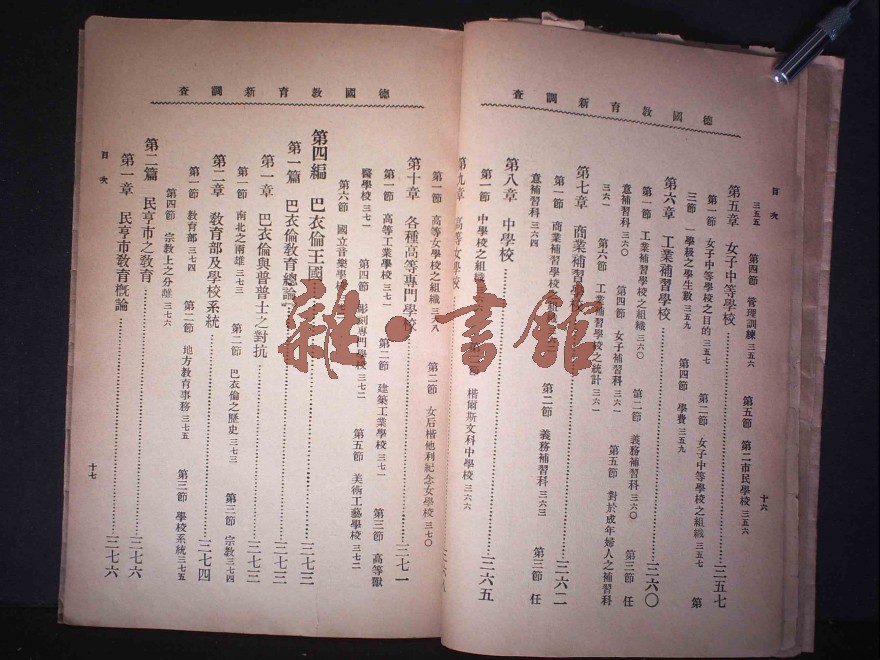 德國教育新調查
目次
十六
三五五　第四節　管理訓練 三五六　第五節　第二市民學校 三五六
第五章　女子中等學校 三五七
第一節　女子中等學校之目的 三五七　第二節　女子中等學校之組織 三五七　第
三節　一學級之學生數 三五九　第四節　學費 三五九
第六章　工業補習學校 三六〇
第一節　工業補習學校之組織 三六〇　第二節　義務補習科 三六〇　第三節　任
意補習科 三六〇　第四節　女子補習科 三六一　第五節　對於成年婦人之補習科
三六一　第六節　工業補習學校之統計 三六一
第七章　商業補習學校 三六二
第一節　商業補習學校之組織　第二節　義務補習科 三六三　第三節　任
意補習科 三六四
第八章　中學校 三六五
第一節　中學校之組織　楷爾斯文科中學校 三六六
第九章　高等女學校
德國教育新調查
目次
十七
第一節　高等女學校之組織　第二節　女后楷他利紀念女學校 三七〇
第十章　各種高等專門學校 三七一
第一節　高等工業學校 三七一　第二節　建築工業學校 三七一　第三節　高等獸
醫學校 三七一　第四節　彫刻專門學校 三七二　第五節　美術工藝學校 三七二
第六節　國立音樂學校
第四編　巴衣倫王國 三七三
第一篇　巴衣倫教育總論 三七三
第一章　巴衣倫與普魯士之對抗 三七三
第一節　南北之兩雄 三七三　第二節　巴衣倫之歷史 三七三　第三節　宗教 三七四
第二章　教育部及學校系統 三七四
第一節　教育部 三七四　第二節　地方教育事務 三七五　第三節　學校系統 三七五
第四節　宗教上之分離 三七六
第二篇　民亨市之教育 三七六
第一章　民亨市教育概論 三七六
雜·書館